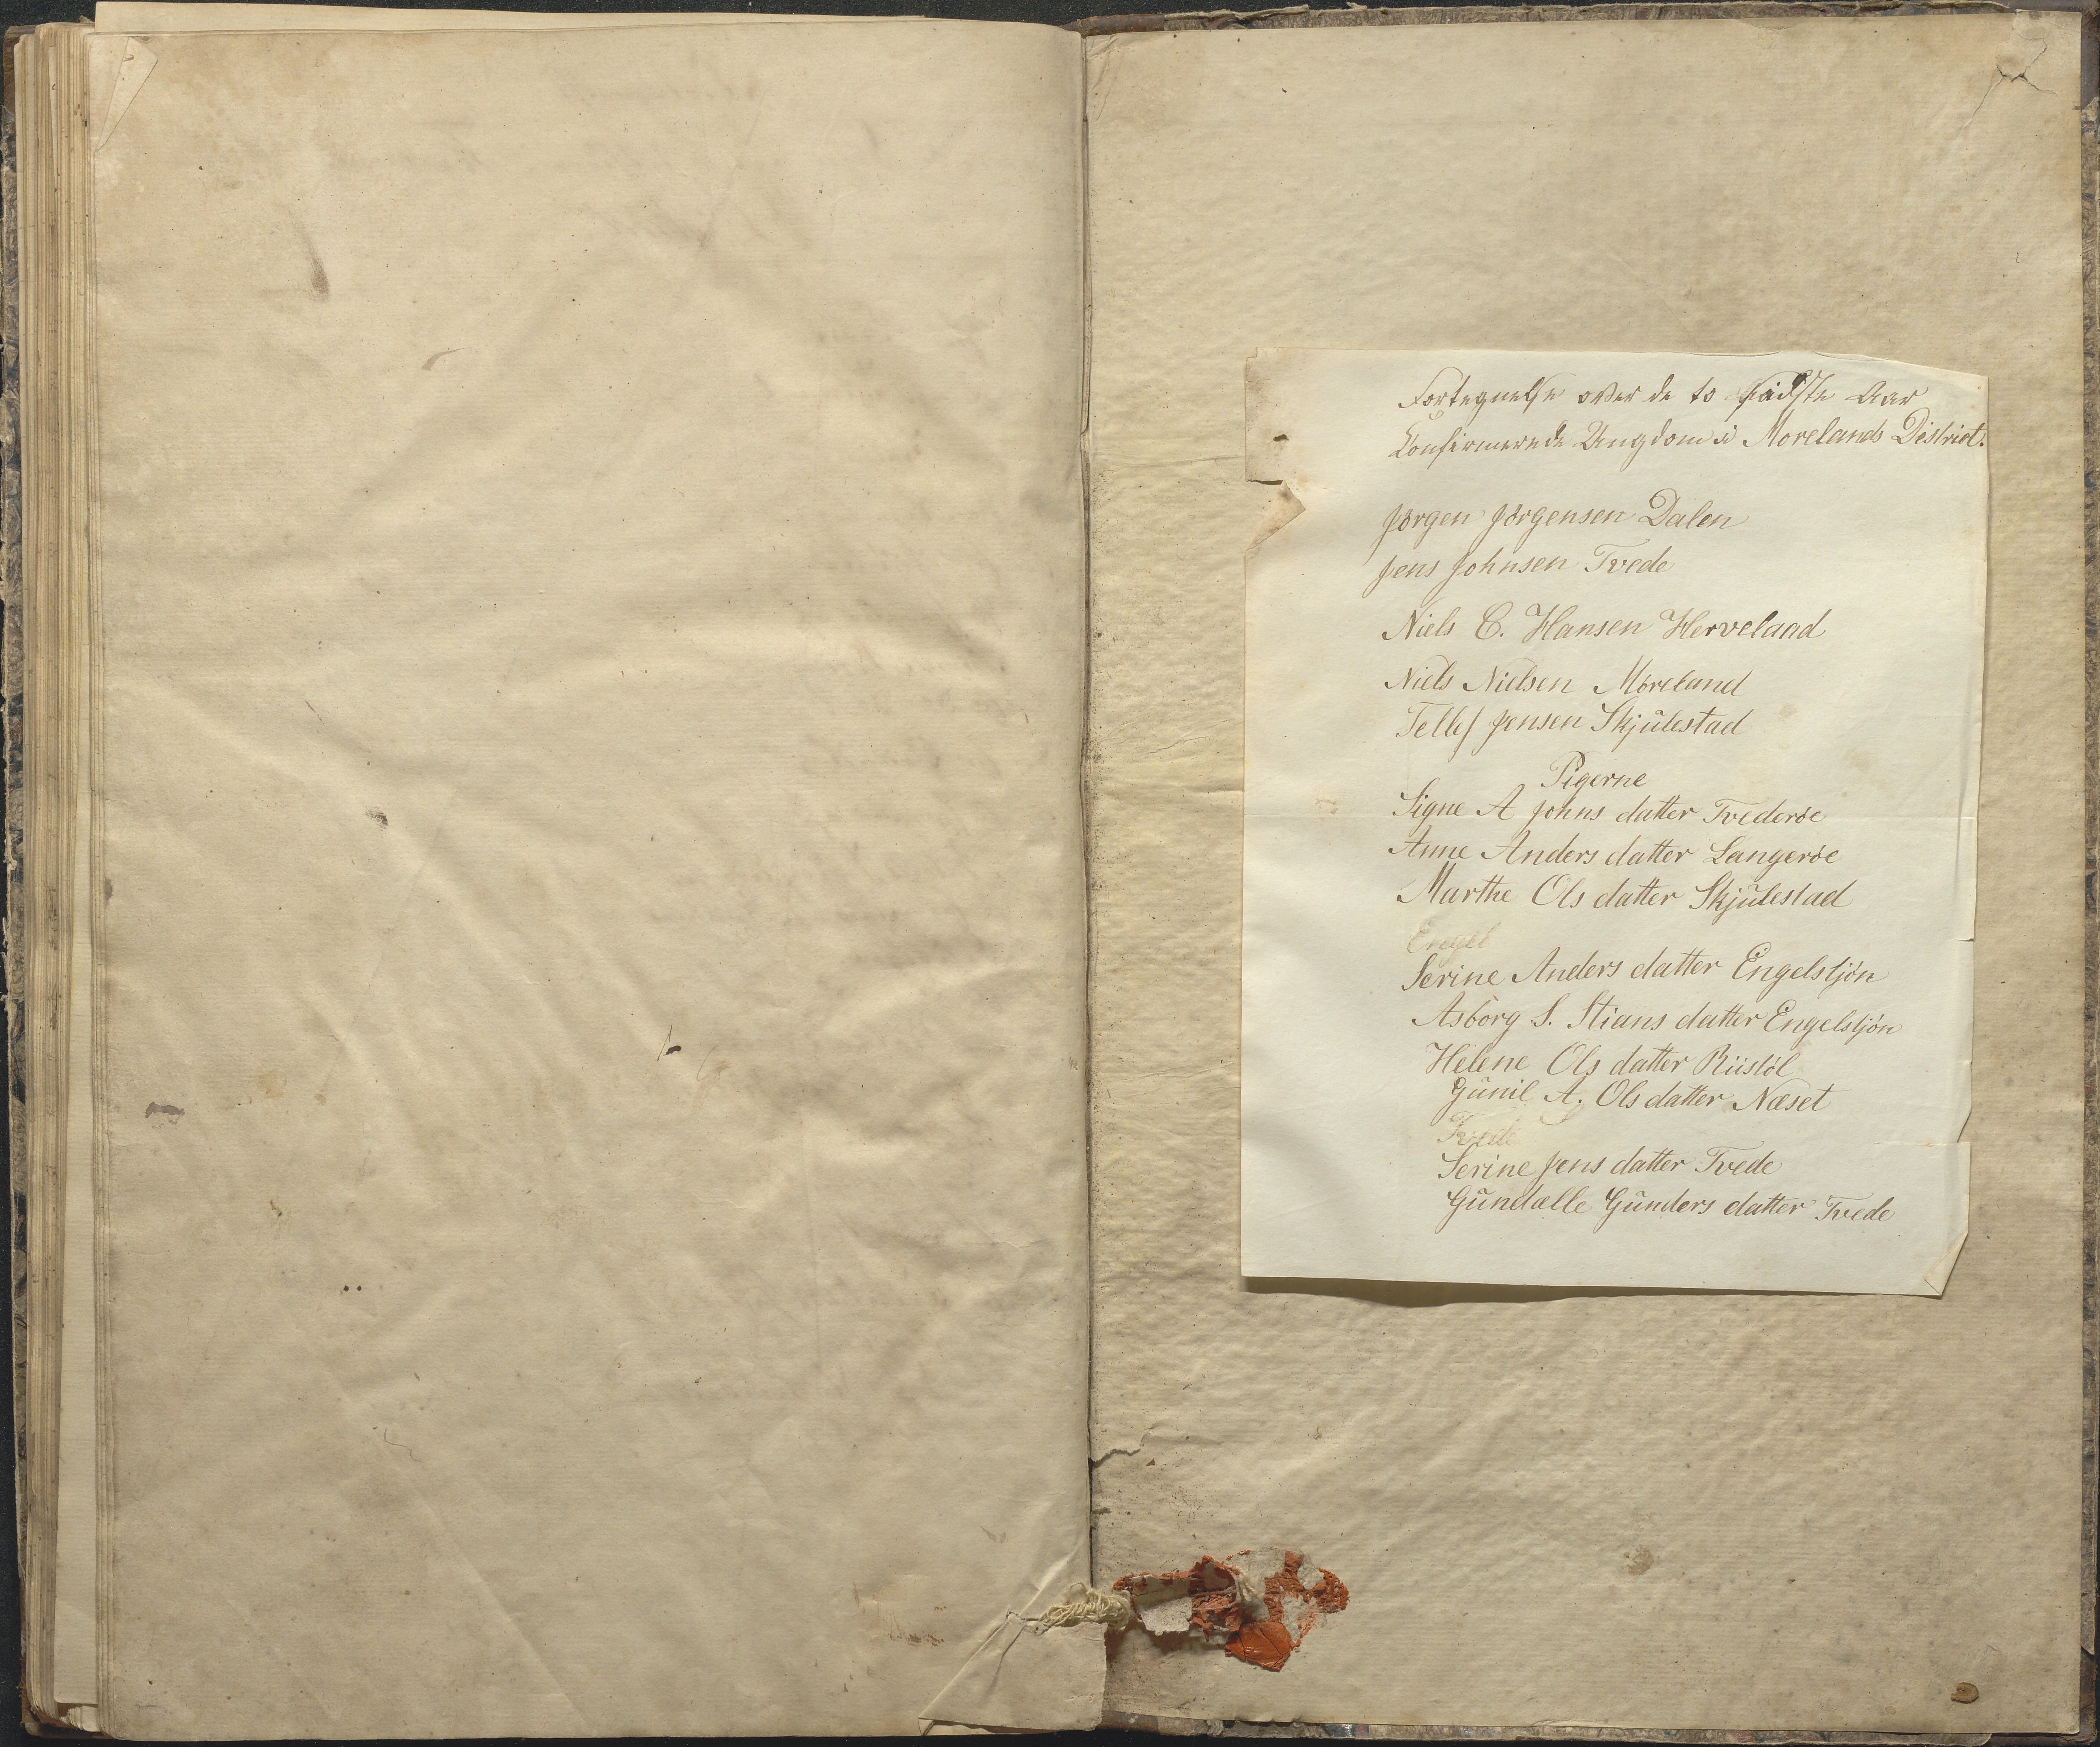 Fortegnelse over de to sidste Aar
Konfirmerede Ungdom i Morelands District.
Jørgen Jørgensen Dalen
Jens Johnsen Tvede
Niels C. Hansen Hervelaad
Niels Nielsen Moreland
Tellef Jensen Skjülestad
Pigerne
Signe A Johns datter Tvederøe
Anne Anders datter Langerøe
Marthe Ols datter Skjülestad
Engel
Serine Anders datter Engelstjön
Asborg S. Stians datter Engelstjön
Helene Ols datter Riislöl
Günil A. Ols datter Næset
Tvede
Serine Jens datter Tvede
Gündælle Günders datter Tvede